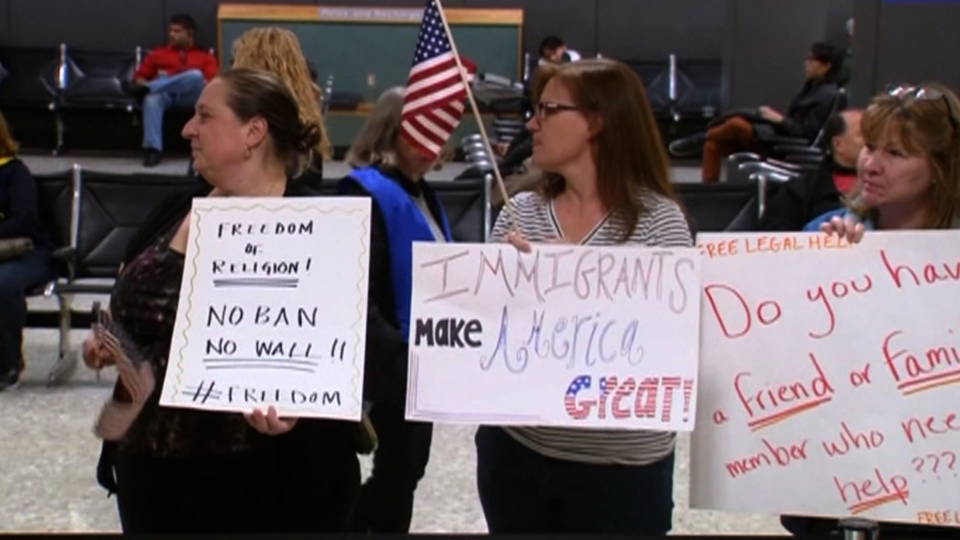 FREEDOM
OF
RELIGION!
NO BAN
NO WALL!!
#FREEDOM
IMMIGRANTS
Make America
Great!!
FREE LEGAL HELP
Do you hav
a friend or Fami
member who nee
help???
FREE L